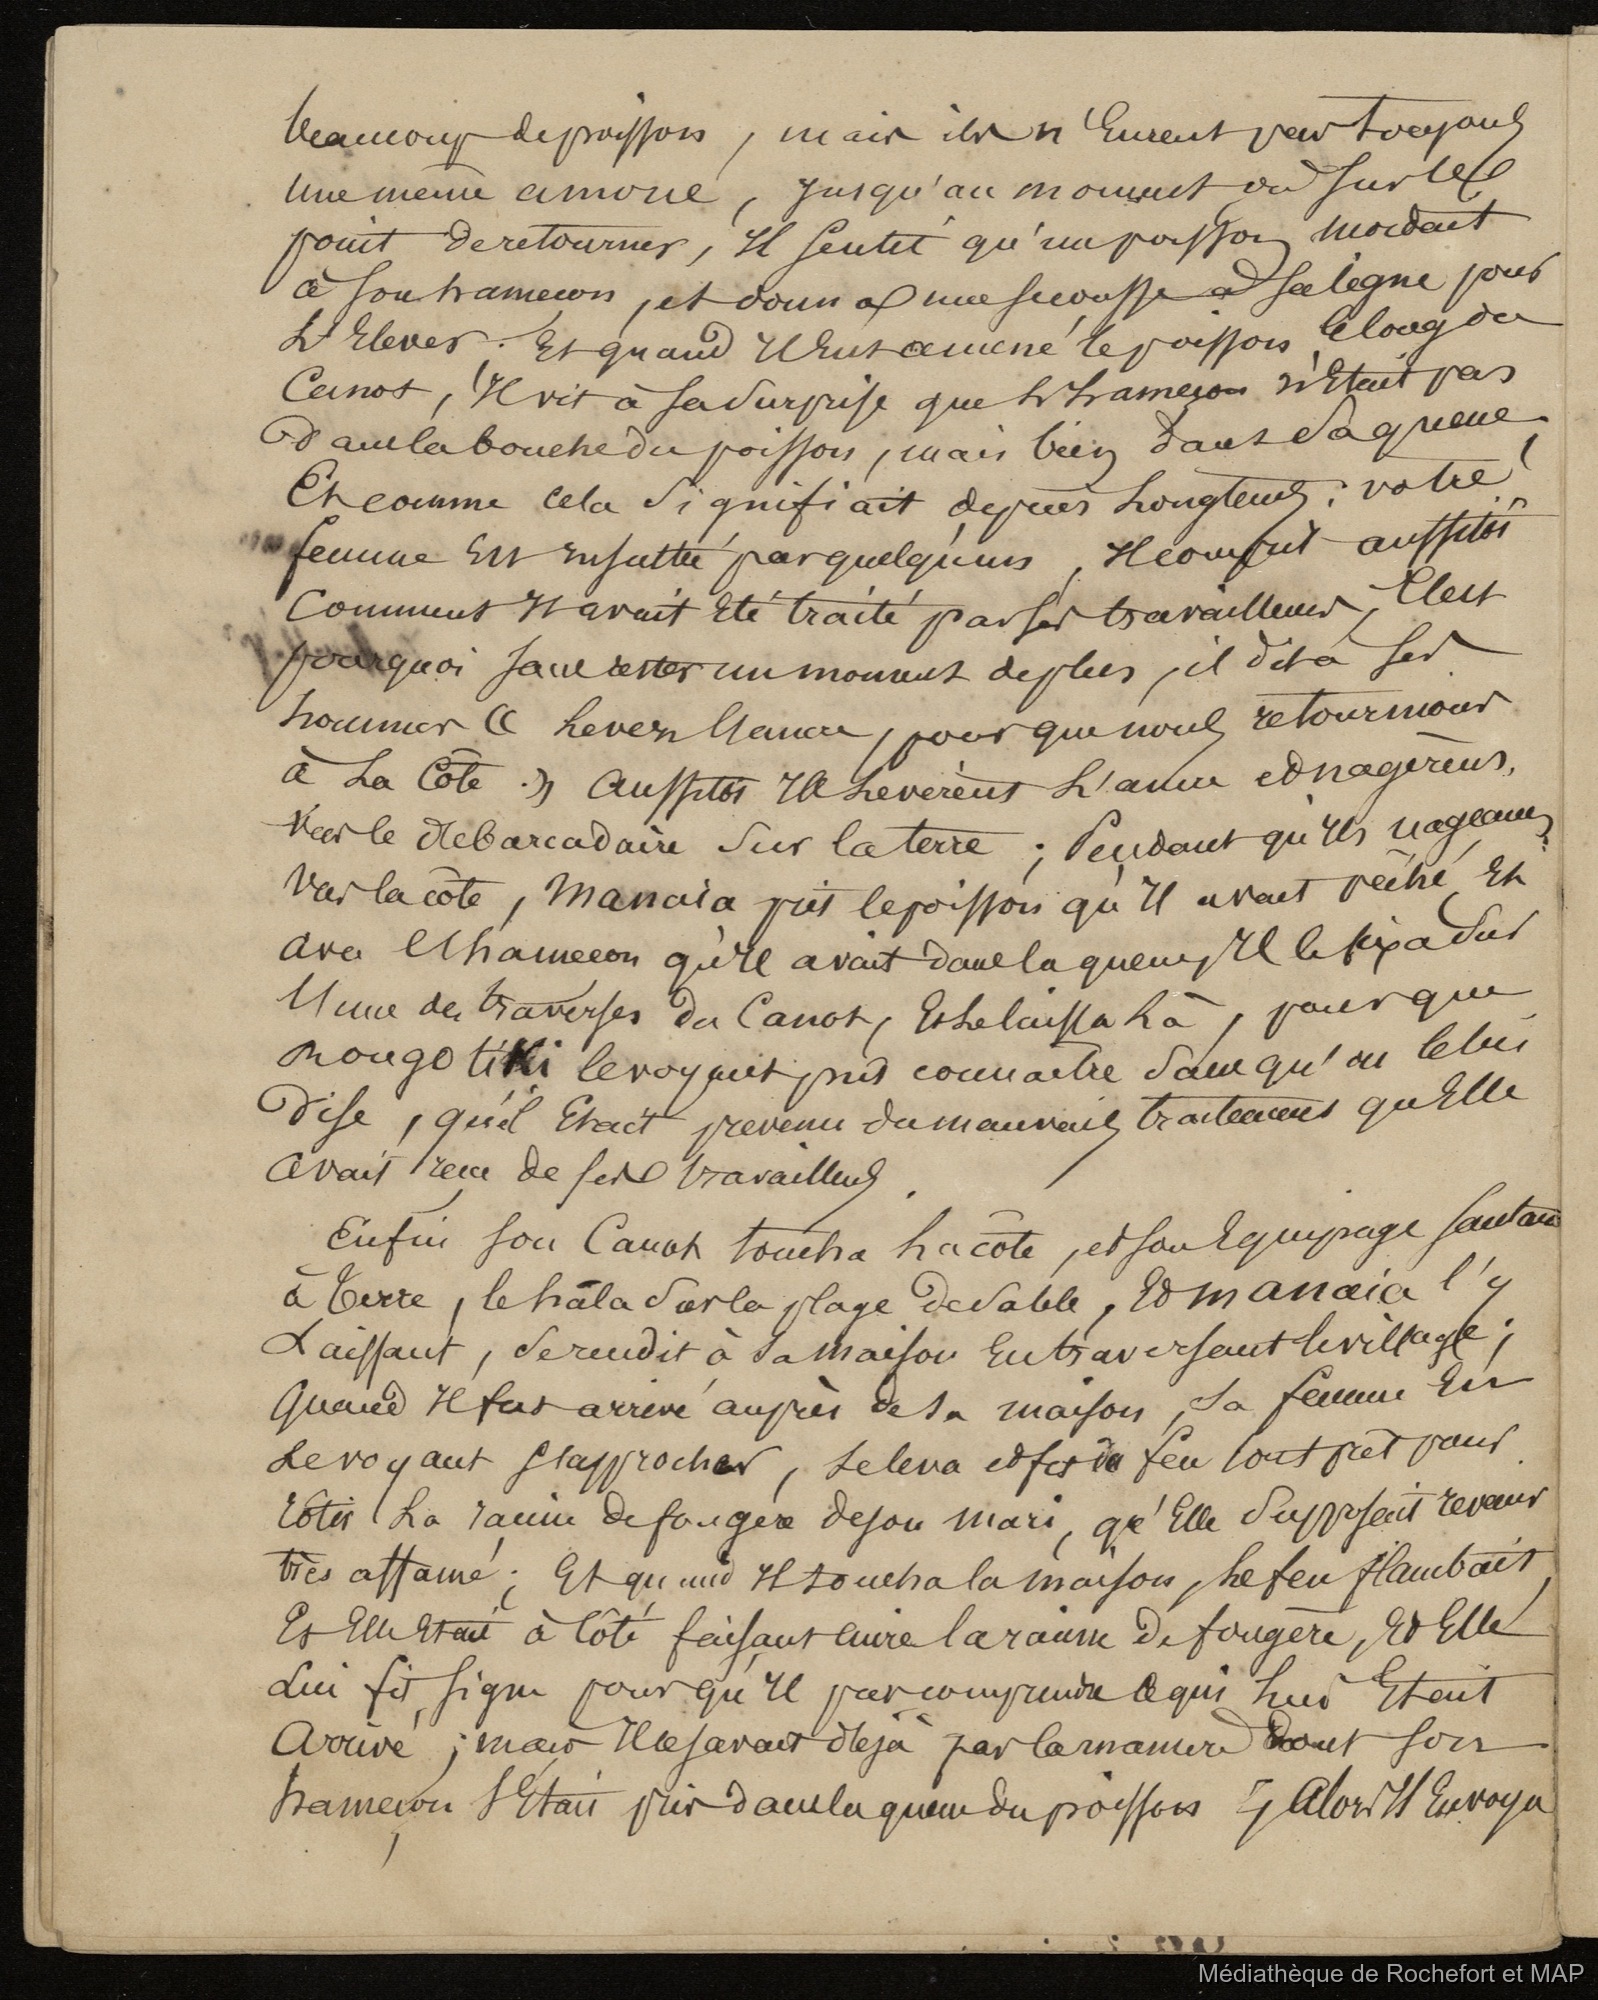 beaucoup de poissons, mais ils n'eurent pas toujours
une même amorce, jusqu'au moment où sur le
point de retourner, Il sentit qu'un poisson mordait
à son hameçon, et donna une secousse à sa ligne pour
L'Elever. Et quand Il eut amené le poisson le long du
Canot, Il vit à sa surprise que L'hameçon n'Etait pas
Dans la bouche du poisson, mais bien dans sa queue,
Et comme cela signifiait depuis Longtems: votre
femme Est insultée par quelqu'uns, Il comprit aussitôt
Comment Il avait Eté traité par ses travailleurs, C'est
pourquoi sans rester un moment de plus, il dit à ses
hommes « Levez L'ancre, pour que nous retournions
à La Côte. » Aussitôt Ils Levèrent L'ancre et nagèrent,
vers le debarcadaire sur la terre; Pendant qu'Ils nageaient
vers la côte, Manaia prit le poisson qu'Il avait pêché, Et
avec L'hameçon qu'Il avait dans la queue, Il le fixa sur
L'une des traverses du Canot, Et Le laissa Là, pour que
Rongotiki le voyant, put connaitre sans qu'on le lui
Dise, qu'il Etait prevenu du mauvais traitement qu'Elle
avait reçu de ses travailleurs.
Enfin son Canot toucha La côte, et son Equipage sautant
à terre, le hâla sur la plage de sable, Et Manaia l'y
Laissant, se rendit à sa maison En traversant le village;
Quand Il fut arrivé auprès de sa maison, sa femme En
Le voyant s'approcher, se leva et fit du feu tout prêt pour
rôtir La racine de fougère de son mari, qu'Elle supposait revenir
très affamé; Et quand Il toucha la maison, Le feu flambait,
Et Elle Etait à côté faisant cuire la racine de fougère, Et Elle
Lui fit signe pour qu'Il put comprendre ce qui Leur Etait
Arrivé; mais Il le savait déjà par la maniere dont son
hameçon s'Etait pris dans la queue du poisson; Alors Il Envoya
Médiathèque de Rochefort et MAP